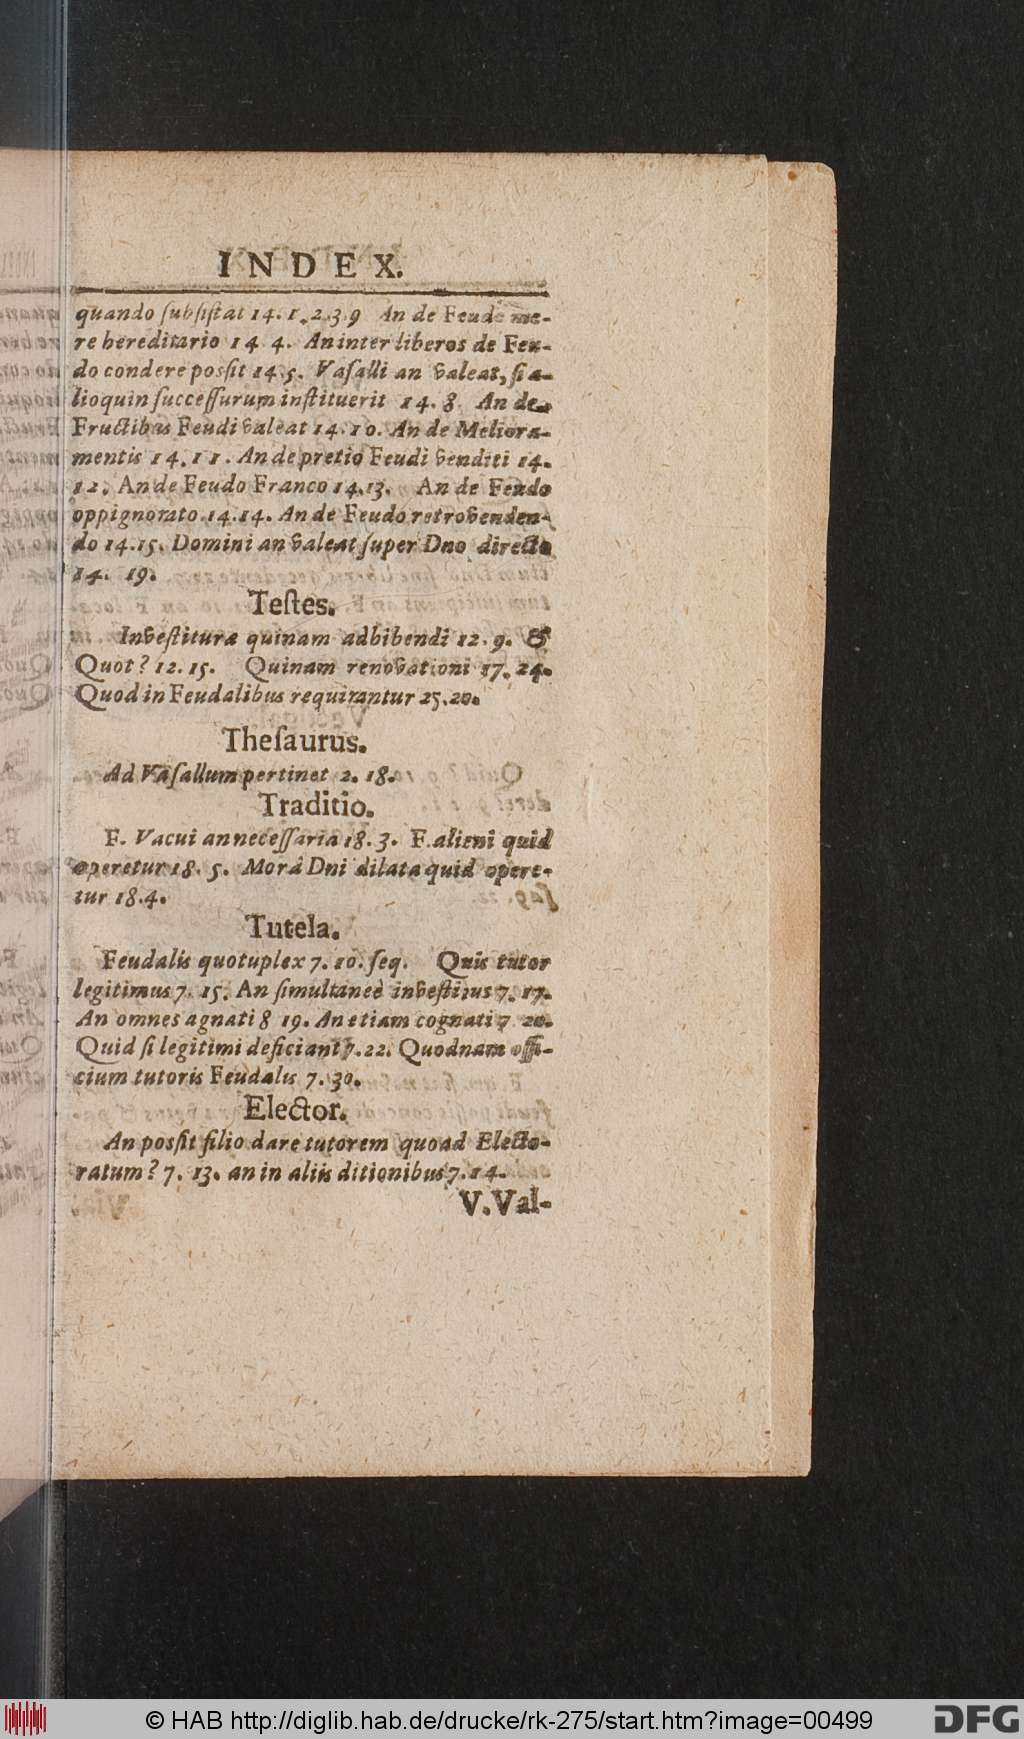 INDEX.
quando ſubſiſtat 14. 1. 2. 3. 9 An de Feudo me-
re hereditario 14 4. An inter liberos de Feu-
do condere posſit 14. 5. Vaſalli an valeat, ſi a-
lioquin ſucceſſurum inſtituerit 14. 8. An de
Fructibus Feudi valeat 14. 10. An de Meliora-
mentis 14. 11. An de pretio Feudi venditi 14.
12. An de Feudo Franco 14. 13. An de Feudo
oppignorato 14. 14. An de Feudo retrovenden-
do 14. 15. Domini an valeat ſuper Dno directo
14. 19.
Teſtes.
Inveſtituræ quinam adhibendi 12. 9. &
Quot? 12. 15. Quinam renovationi 17. 24.
Quod in Feudalibus requirantur 25. 20.
Theſaurus.
Ad Vaſallum pertinet 2. 18.
Traditio.
F. Vacui an neceſſaria 18. 3. F. alieni quid
operetur 18. 5. Morâ Dni dilata quid opere-
tur 18. 4.
Tutela.
Feudalis quotuplex 7. 10. ſeq. Quis tutor
legitimus 7. 15. An ſimultaneè inveſtitus 7. 17.
An omnes agnati 8 19. An etiam cognati 7 20.
Quid ſi legitimi deficiant 7. 22. Quodnam offi-
cium tutoris Feudalis 7. 30.
Elector.
An posſit filio dare tutorem quoad Electo-
ratum? 7. 13. an in aliis ditionibus 7. 14.
V. Val-
© HAB http://diglib.hab.de/drucke/rk-275/start.htm?image=00499
DFG